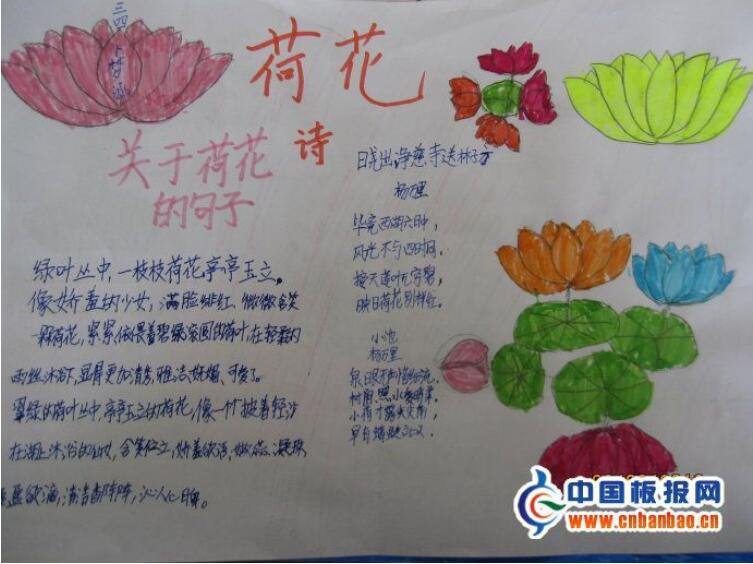 三四
荷花
关于荷花
的句子
绿叶丛中,一枝枝荷花亭亭玉立。
像娇羞的少女,满脸绯红,微微含笑
一颗荷花,紧紧依偎着碧绿滚圆的荷叶,在轻柔的
雨丝沐浴下,显得更加清秀,雅洁、妩媚、可爱了。
翠绿的荷叶丛中,亭亭玉立的荷花,像一个披着轻纱
在湖上沐浴的仙女,含笑伫立,娇羞欲语,嫩蕊凝珠
盈盈欲滴,清香阵阵,沁人心脾。
诗
晓出净慈寺送林子方
杨万里
毕竟西湖六月中,
风光不与四时同。
接天莲叶无穷碧,
映日荷花别样红。
小池
杨万里
泉眼无声惜细流,
树阴照水爱晴柔。
小荷才露尖尖角,
早有蜻蜓立
中国板报网
www.cnbanbao.cn